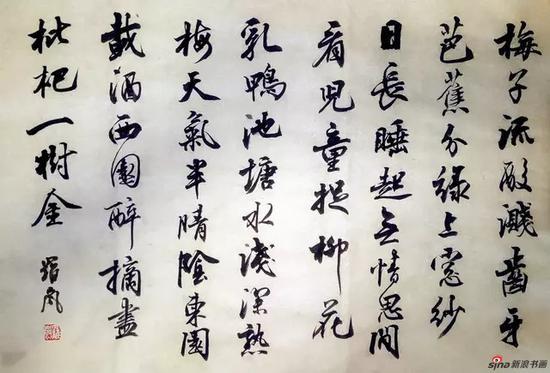 梅子流酸濺齒牙
芭蕉分綠上窓紗
日長睡起无情思閒
看兒童捉柳花
乳鴨池塘水淺深熟
梅天氣半晴陰東園
載酒西園醉摘盡
枇杷一樹金
sina新浪书画